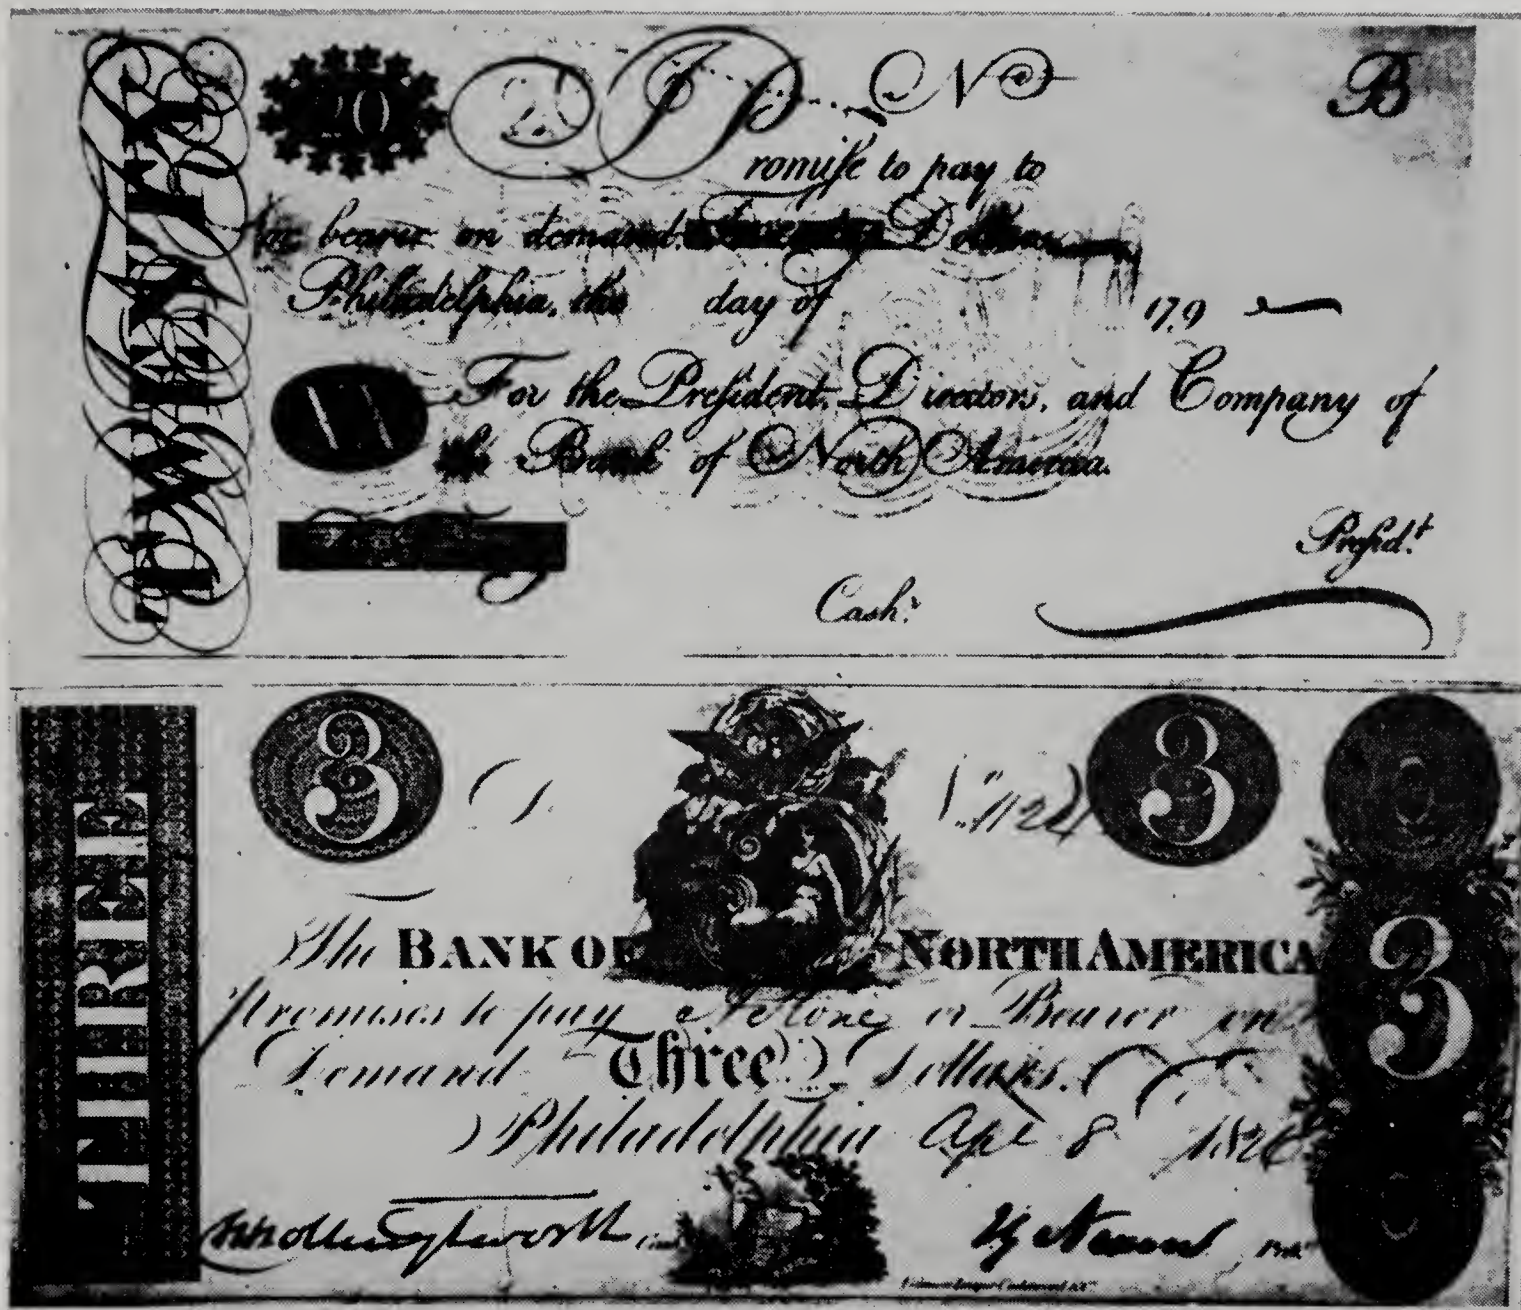 TWENTY
20 I P N° B
romiſe to pay to
or bearer on demand Twenty Dollars
Philadelphia, the day of 179
For the Preſident, Directors, and Company of
the Bank of North America.
Preſid.t
Cash.r
THREE
3 3
The BANK OF NORTH AMERICA
3
Promises to pay or Bearer on
Demand Three Dollars.
Philadelphia Apl 8
H Hollingsworth